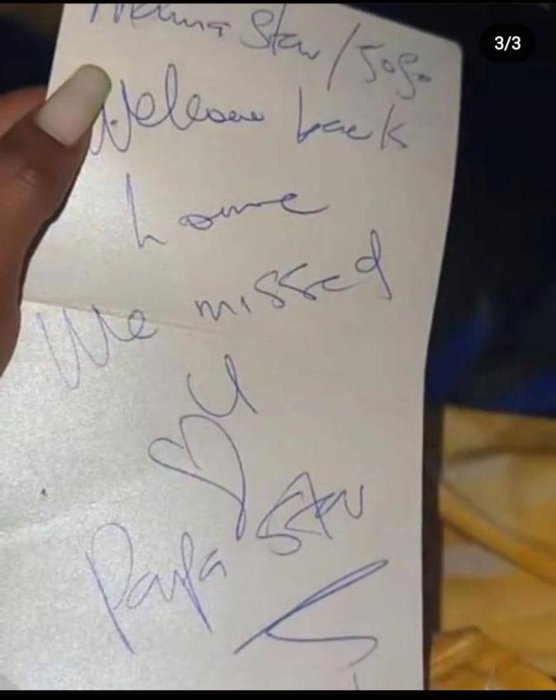 3/3
Mama Star / Sogo
Welcome back
home
We missed
U
Papa Star